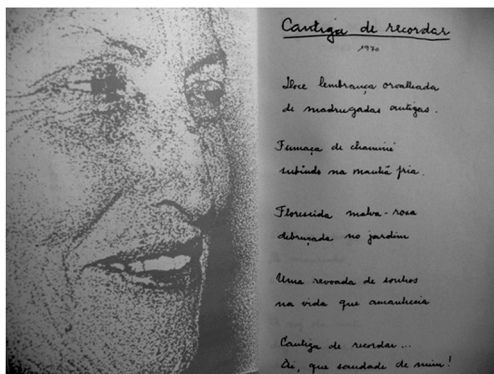 Cantiga de recordar
1970
Doce lembrança orvalhada
de madrugadas antigas.
Fumaça de chaminé
subindo na manhã fria.
Florescida malva-rosa
debruçada no jardim
Uma revoada de sonhos
na vida que amanhecia
Cantiga de recordar...
Ai, que saudade de mim!